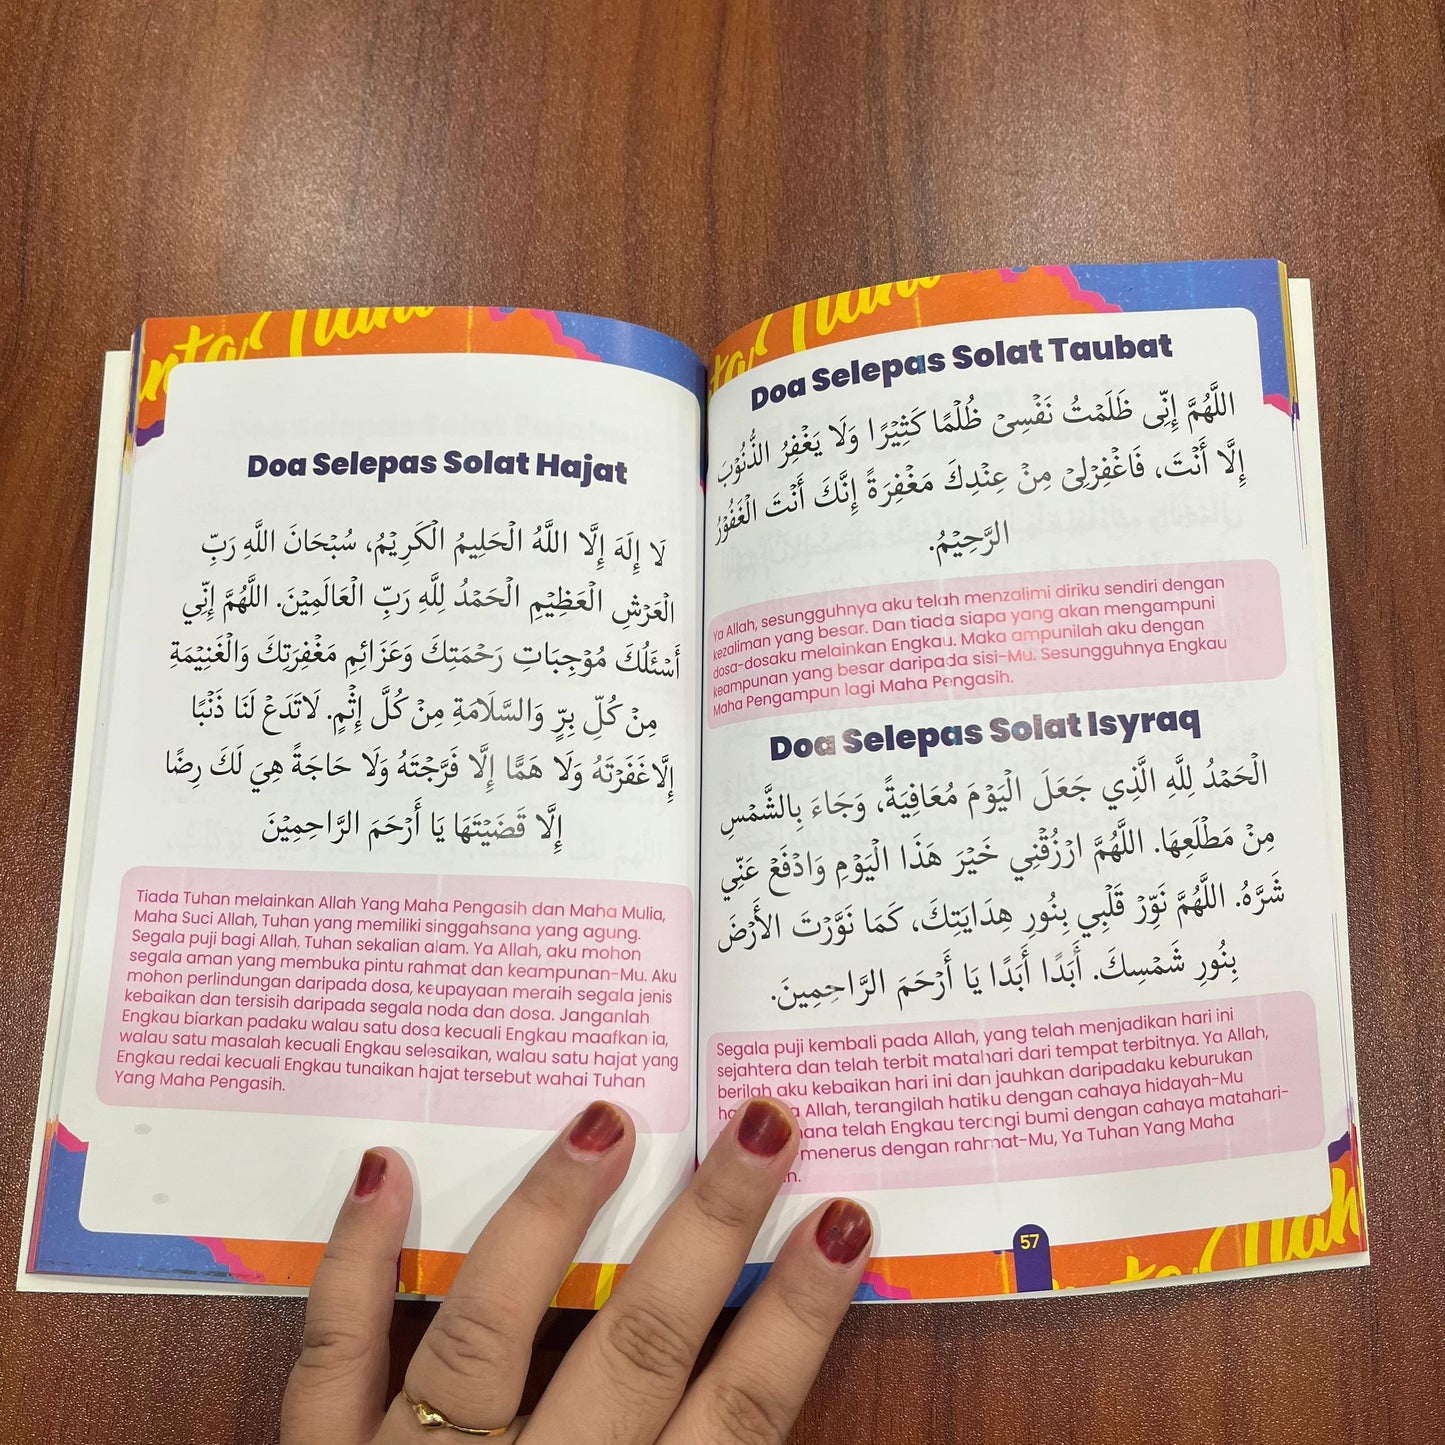 Doa Selepas Solat Hajat
لَا إِلَهَ إِلَّا اللَّهُ الْحَلِيمُ الْكَرِيْمُ، سُبْحَانَ اللَّهِ رَبِّ
الْعَرْشِ الْعَظِيْمِ الْحَمْدُ لِلَّهِ رَبِّ الْعَالَمِيْنَ. اللَّهُمَّ إِنِّي
أَسْئَلُكَ مُوْجِبَاتِ رَحْمَتِكَ وَعَزَائِمِ مَغْفِرَتِكَ وَالْغَنِيْمَةِ
مِنْ كُلِّ بِرٍّ وَالسَّلَامَةِ مِنْ كُلَّ إِثْمٍ. لَاتَدَعْ لَنَا ذَنْبًا
إِلَّاغَفَرْتَهُ وَلَا هَمًّا إِلَّا فَرَّجْتَهُ وَلَا حَاجَةً هِيَ لَكَ رِضًا
إِلَّا قَضَيْتَهَا يَا أَرْحَمَ الرَّاحِمِيْنَ
Tiada Tuhan melainkan Allah Yang Maha Pengasih dan Maha Mulia,
Maha Suci Allah, Tuhan yang memiliki singgahsana yang agung.
Segala puji bagi Allah, Tuhan sekalian alam. Ya Allah, aku mohon
segala aman yang membuka pintu rahmat dan keampunan-Mu. Aku
mohon perlindungan daripada dosa, keupayaan meraih segala jenis
kebaikan dan tersisih daripada segala noda dan dosa. Janganlah
Engkau biarkan padaku walau satu dosa kecuali Engkau maafkan ia,
walau satu masalah kecuali Engkau selesaikan, walau satu hajat yang
Engkau redai kecuali Engkau tunaikan hajat tersebut wahai Tuhan
Yang Maha Pengasih.
Doa Selepas Solat Taubat
اللَّهُمَّ إِنِّى ظَلَمْتُ نَفْسِىْ ظُلْمًا كَثِيْرًا وَلَا يَغْفِرُ الذُّنُوْبَ
إِلَّا أَنْتَ، فَاغْفِرْلِىْ مِنْ عِنْدِكَ مَغْفِرَةً إِنَّكَ أَنْتَ الْغَفُوْرُ
الرَّحِيْمُ.
Ya Allah, sesungguhnya aku telah menzalimi diriku sendiri dengan
kezaliman yang besar. Dan tiada siapa yang akan mengampuni
dosa-dosaku melainkan Engkau. Maka ampunilah aku dengan
keampunan yang besar daripada sisi-Mu. Sesungguhnya Engkau
Maha Pengampun lagi Maha Pengasih.
Doa Selepas Solat Isyraq
الْحَمْدُ لِلَّهِ الَّذِي جَعَلَ الْيَوْمَ مُعَافِيَةً، وَجَاءَ بِالشَّمْسِ
مِنْ مَطْلَعِهَا. اللَّهُمَّ ارْزُقْنِي خَيْرَ هَذَا الْيَوْمِ وَادْفَعْ عَنِّي
شَرَّهُ. اللَّهُمَّ نَوِّرْ قَلْبِي بِنُورِ هِدَايَتِكَ، كَمَا نَوَّرْتَ الأَرْضَ
بِنُورِ شَمْسِكَ. أَبَدًا أَبَدًا يَا أَرْحَمَ الرَّاحِمِينَ.
Segala puji kembali pada Allah, yang telah menjadikan hari ini
sejahtera dan telah terbit matahari dari tempat terbitnya. Ya Allah,
berilah aku kebaikan hari ini dan jauhkan daripadaku keburukan
Allah, terangilah hatiku dengan cahaya hidayah-Mu
telah Engkau terangi bumi dengan cahaya matahari-
menerus dengan rahmat-Mu, Ya Tuhan Yang Maha
57